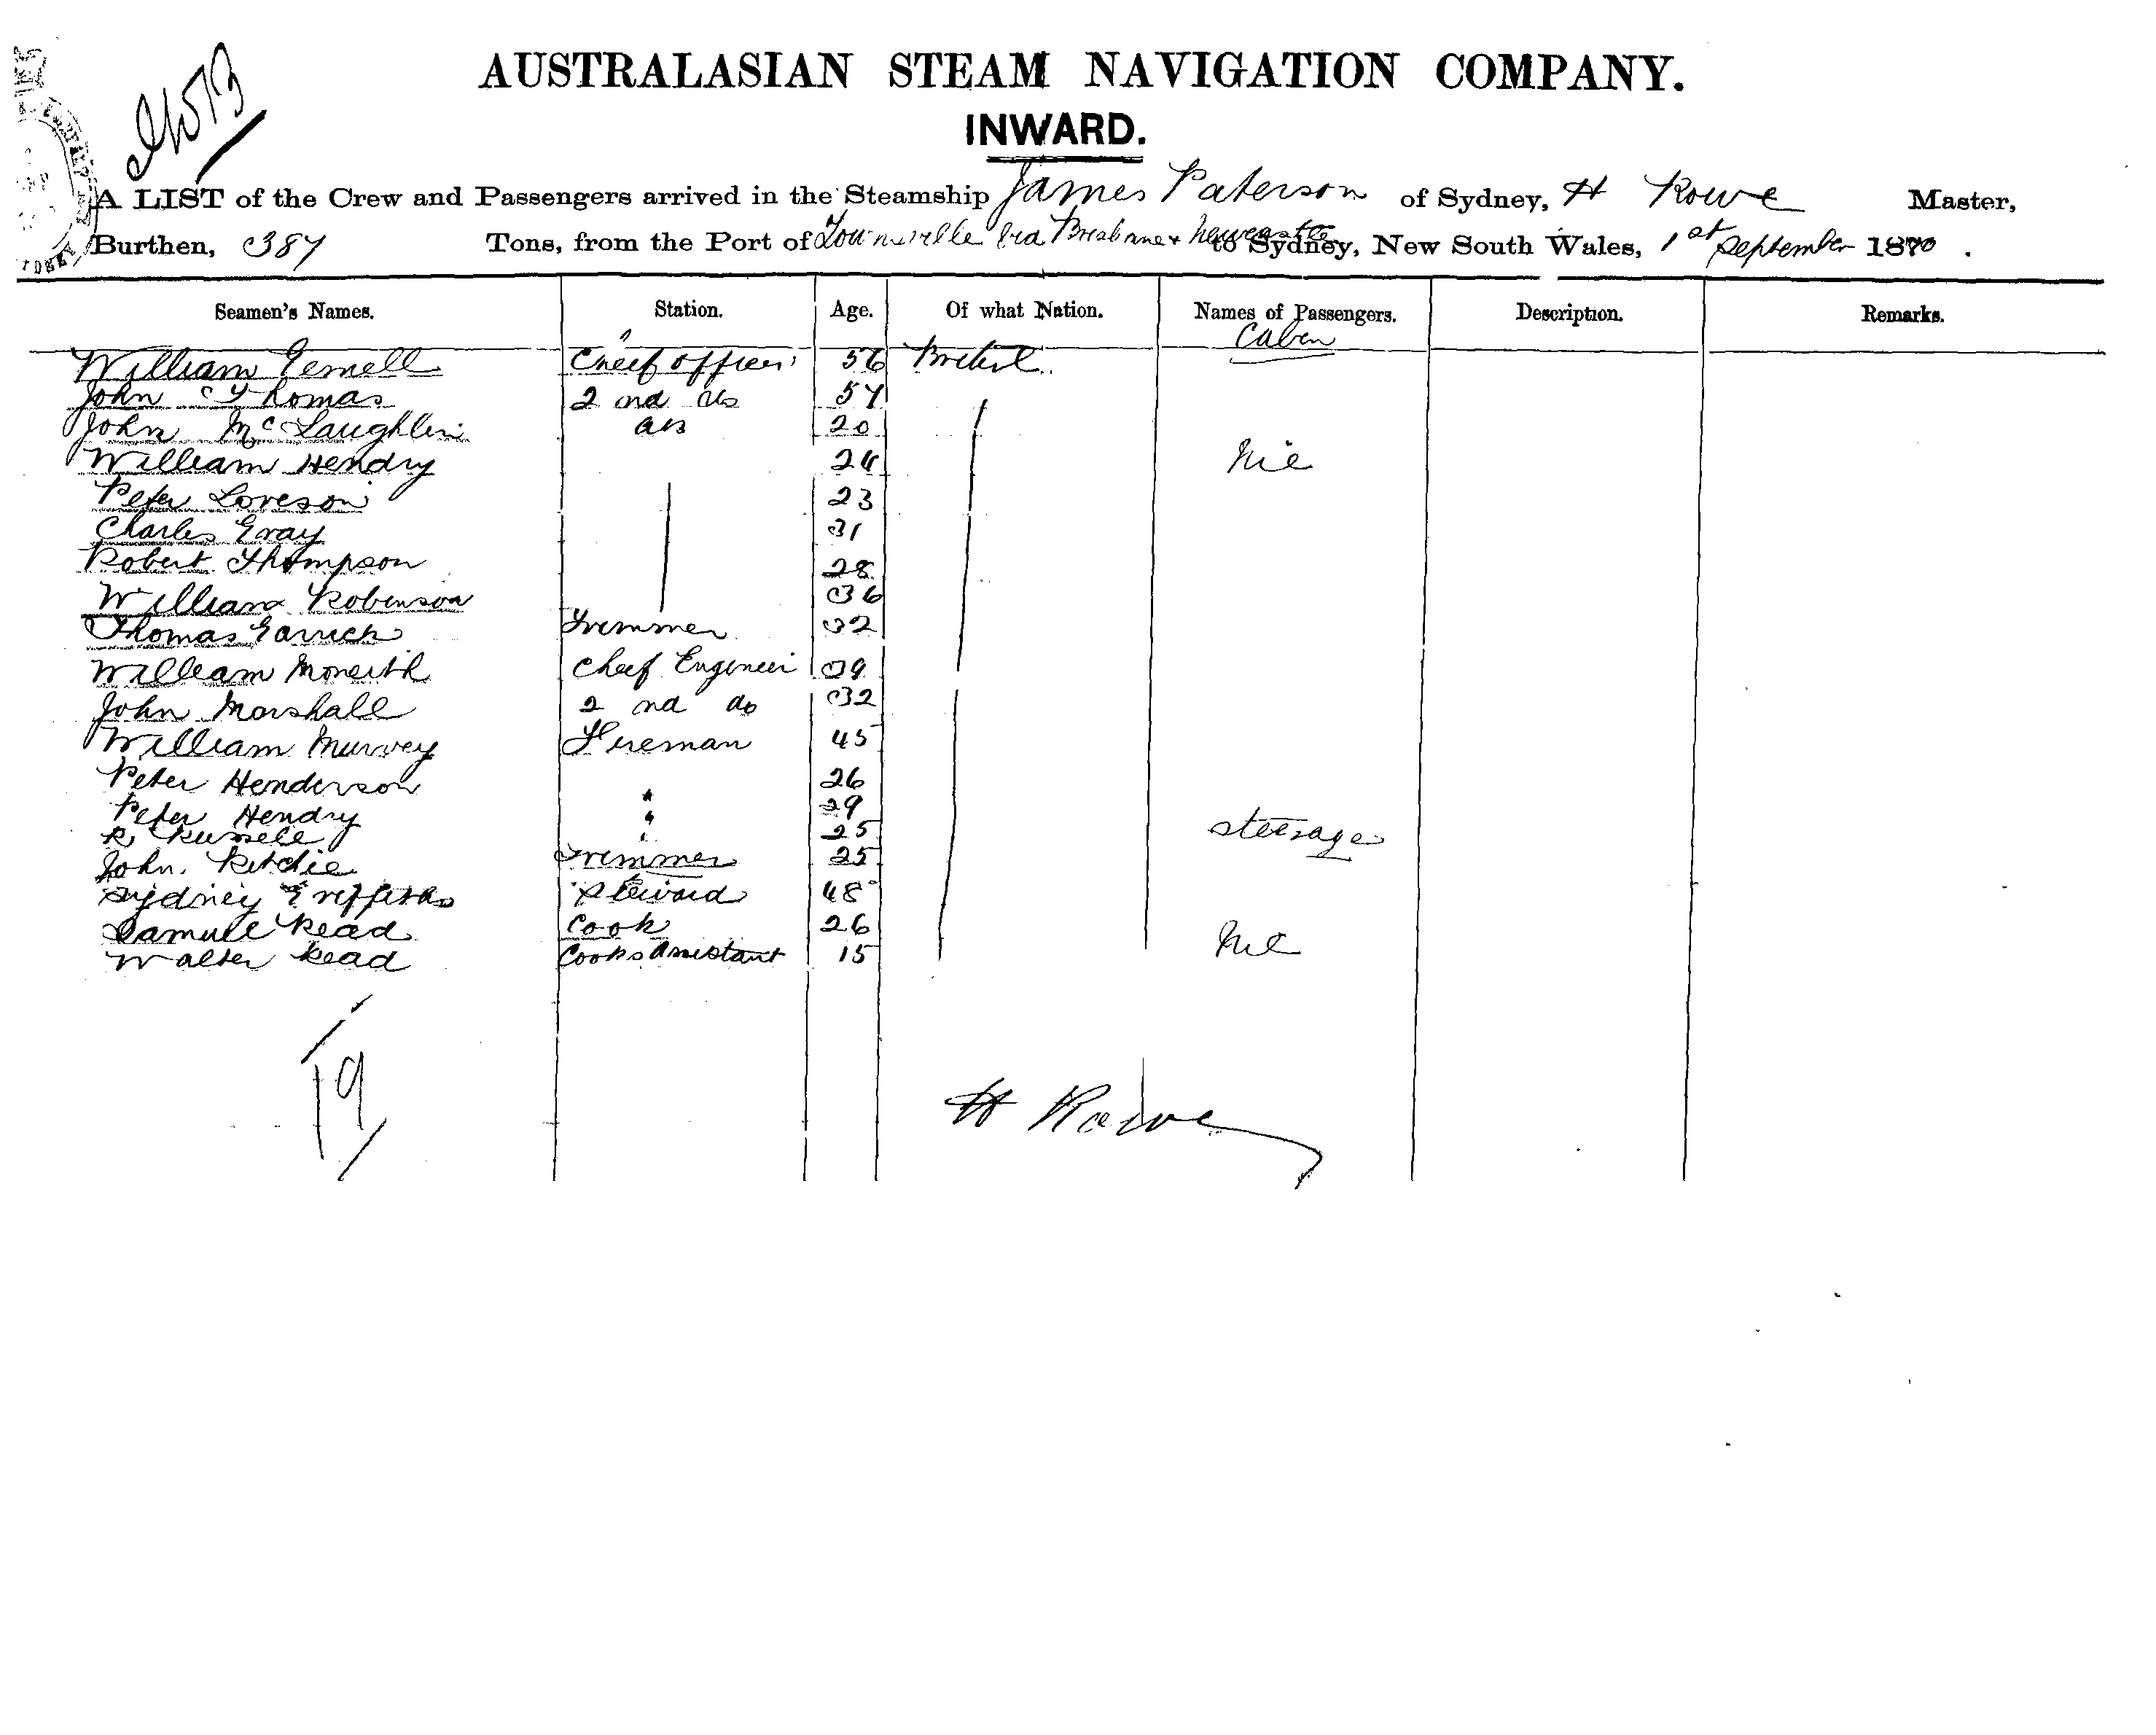 AUSTRALASIAN STEAM NAVIGATION COMPANY.
INWARD.
A LIST of the Crew and Passengers arrived in the Steamship James Paterson of Sydney, H Rowe Master,
Burthen, 387 Tons, from the Port of Townsville via Brisbane & Newcastle to Sydney, New South Wales, 1st September 1870.
Seamen's Names. Station. Age. Of what Nation. Names of Passengers. Description. Remarks.
Cabin
William Chief Officer 56 British
John Thomas 2nd do 57
John McLaughlin AB 20
William Hendry 24 Nil
Peter Loveson 23
Charles Gray 31
Robert Thompson 28
William Robinson 36
Thomas Garrick Trimmer 32
William Moneith Chief Engineer 39
John Marshall 2nd do 32
William Murvey Fireman 45
Peter Henderson 26
Peter Hendry " 29 Steerage
R Russell " 25
John Ritchie Trimmer 25
Sydney Steward 48
Samuel Read Cook 26 Nil
Walter Read Cooks Assistant 15
19
H Rowe